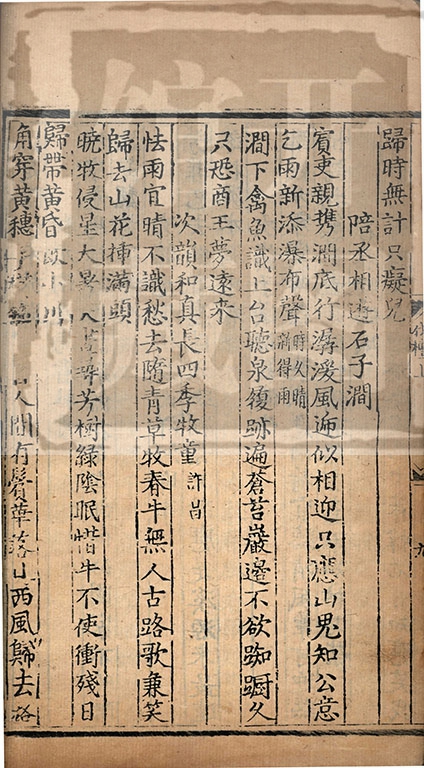 歸時無計只凝兒
陪丞相遊石子澗
賓吏親携澗底行潺湲風迎似相迎只應山鬼知公意
乞雨新添瀑布聲時久晴禱得雨
澗下禽魚識上台聽泉履跡遍蒼苔巖邊不欲踟蹰久
只恐商王夢遠來
次韻和真長四季牧童許昌
怯雨宜晴不識愁去隨青草牧春牛無人古路歌兼笑
歸去山花插滿頭
曉牧侵星大暑 芳樹綠陰眠惜牛不使衝殘日
歸帶黃昏
角穿黃穗 人間有鬢華落山西風歸去